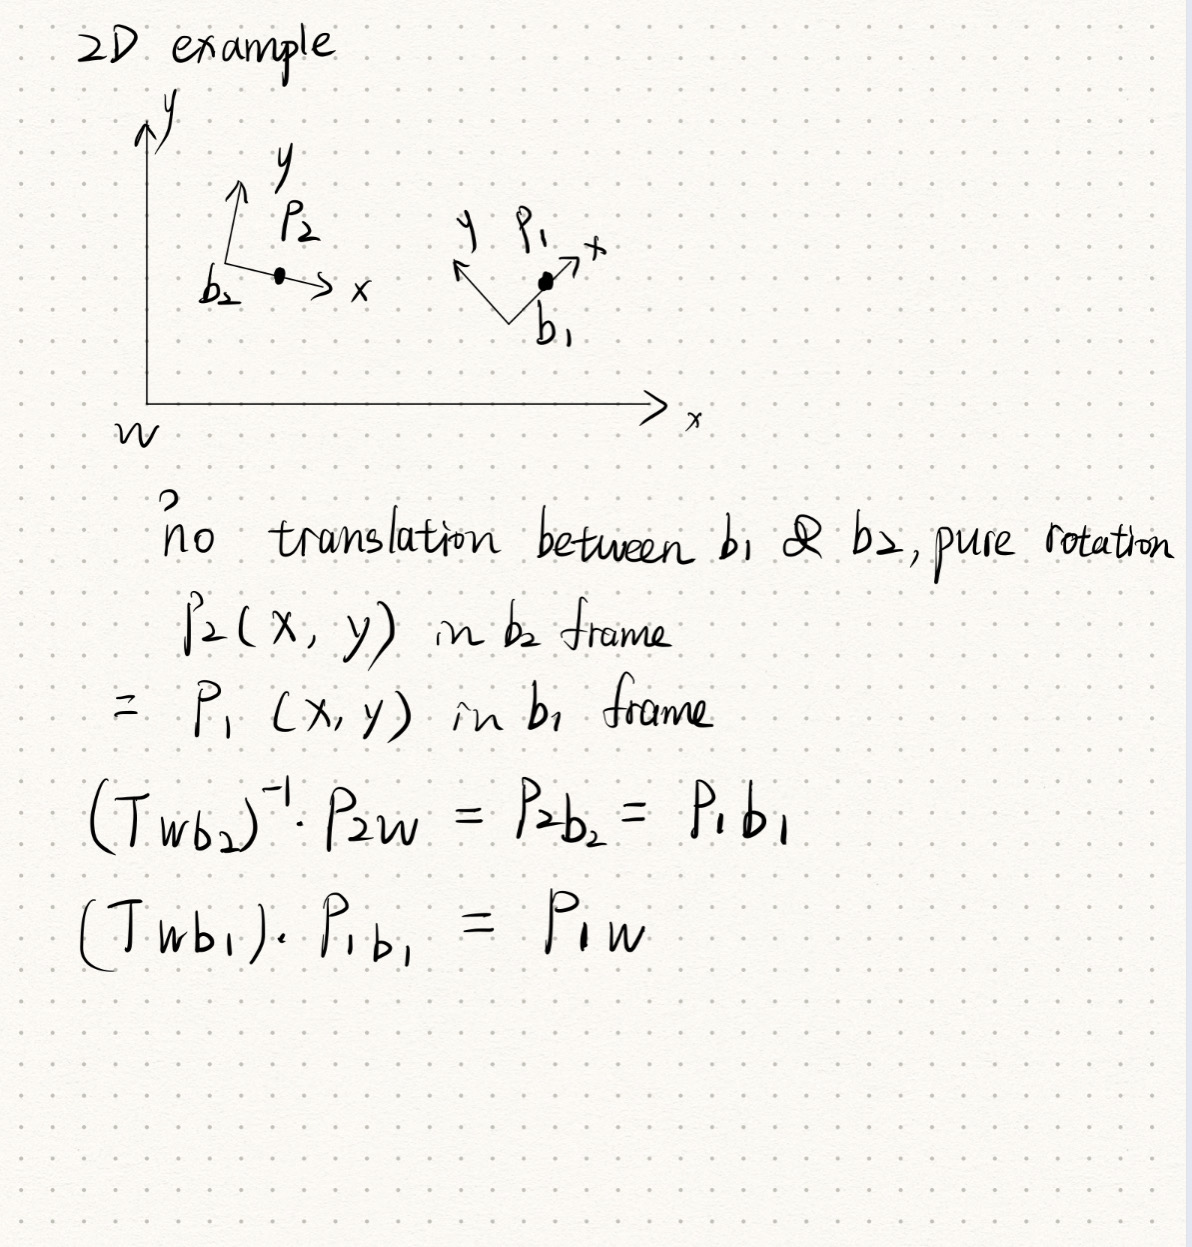 2D example
y
y
P₂
y P₁ x
b₂ x
b₁
x
w
?
no translation between b₁ & b₂, pure rotation
P₂(x, y) in b₂ frame
= P₁ (x, y) in b₁ frame
(Twb₂)⁻¹ · P₂w = P₂b₂ = P₁b₁
(Twb₁) · P₁b₁ = P₁w